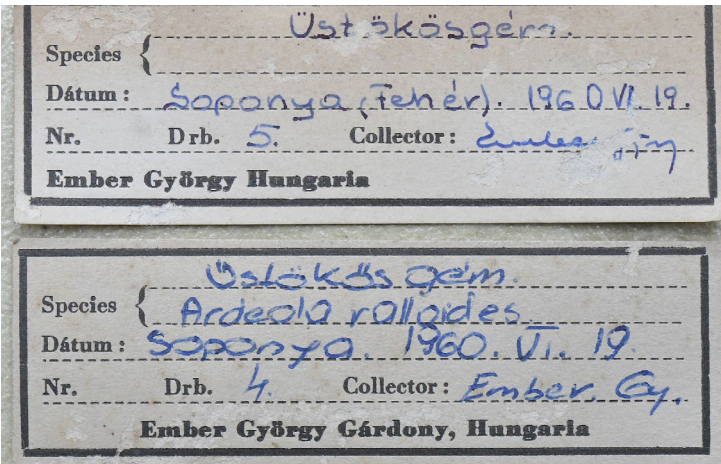 Üstökösgém.
Species {
Dátum: Soponya (Fehér). 1960 VI. 19.
Nr. Drb. 5. Collector: Ember Gy
Ember György Hungaria
Üstökös gém.
Species { Ardeola ralloides.
Dátum: Soponya. 1960. VI. 19.
Nr. Drb. 4. Collector: Ember. Gy.
Ember György Gárdony, Hungaria